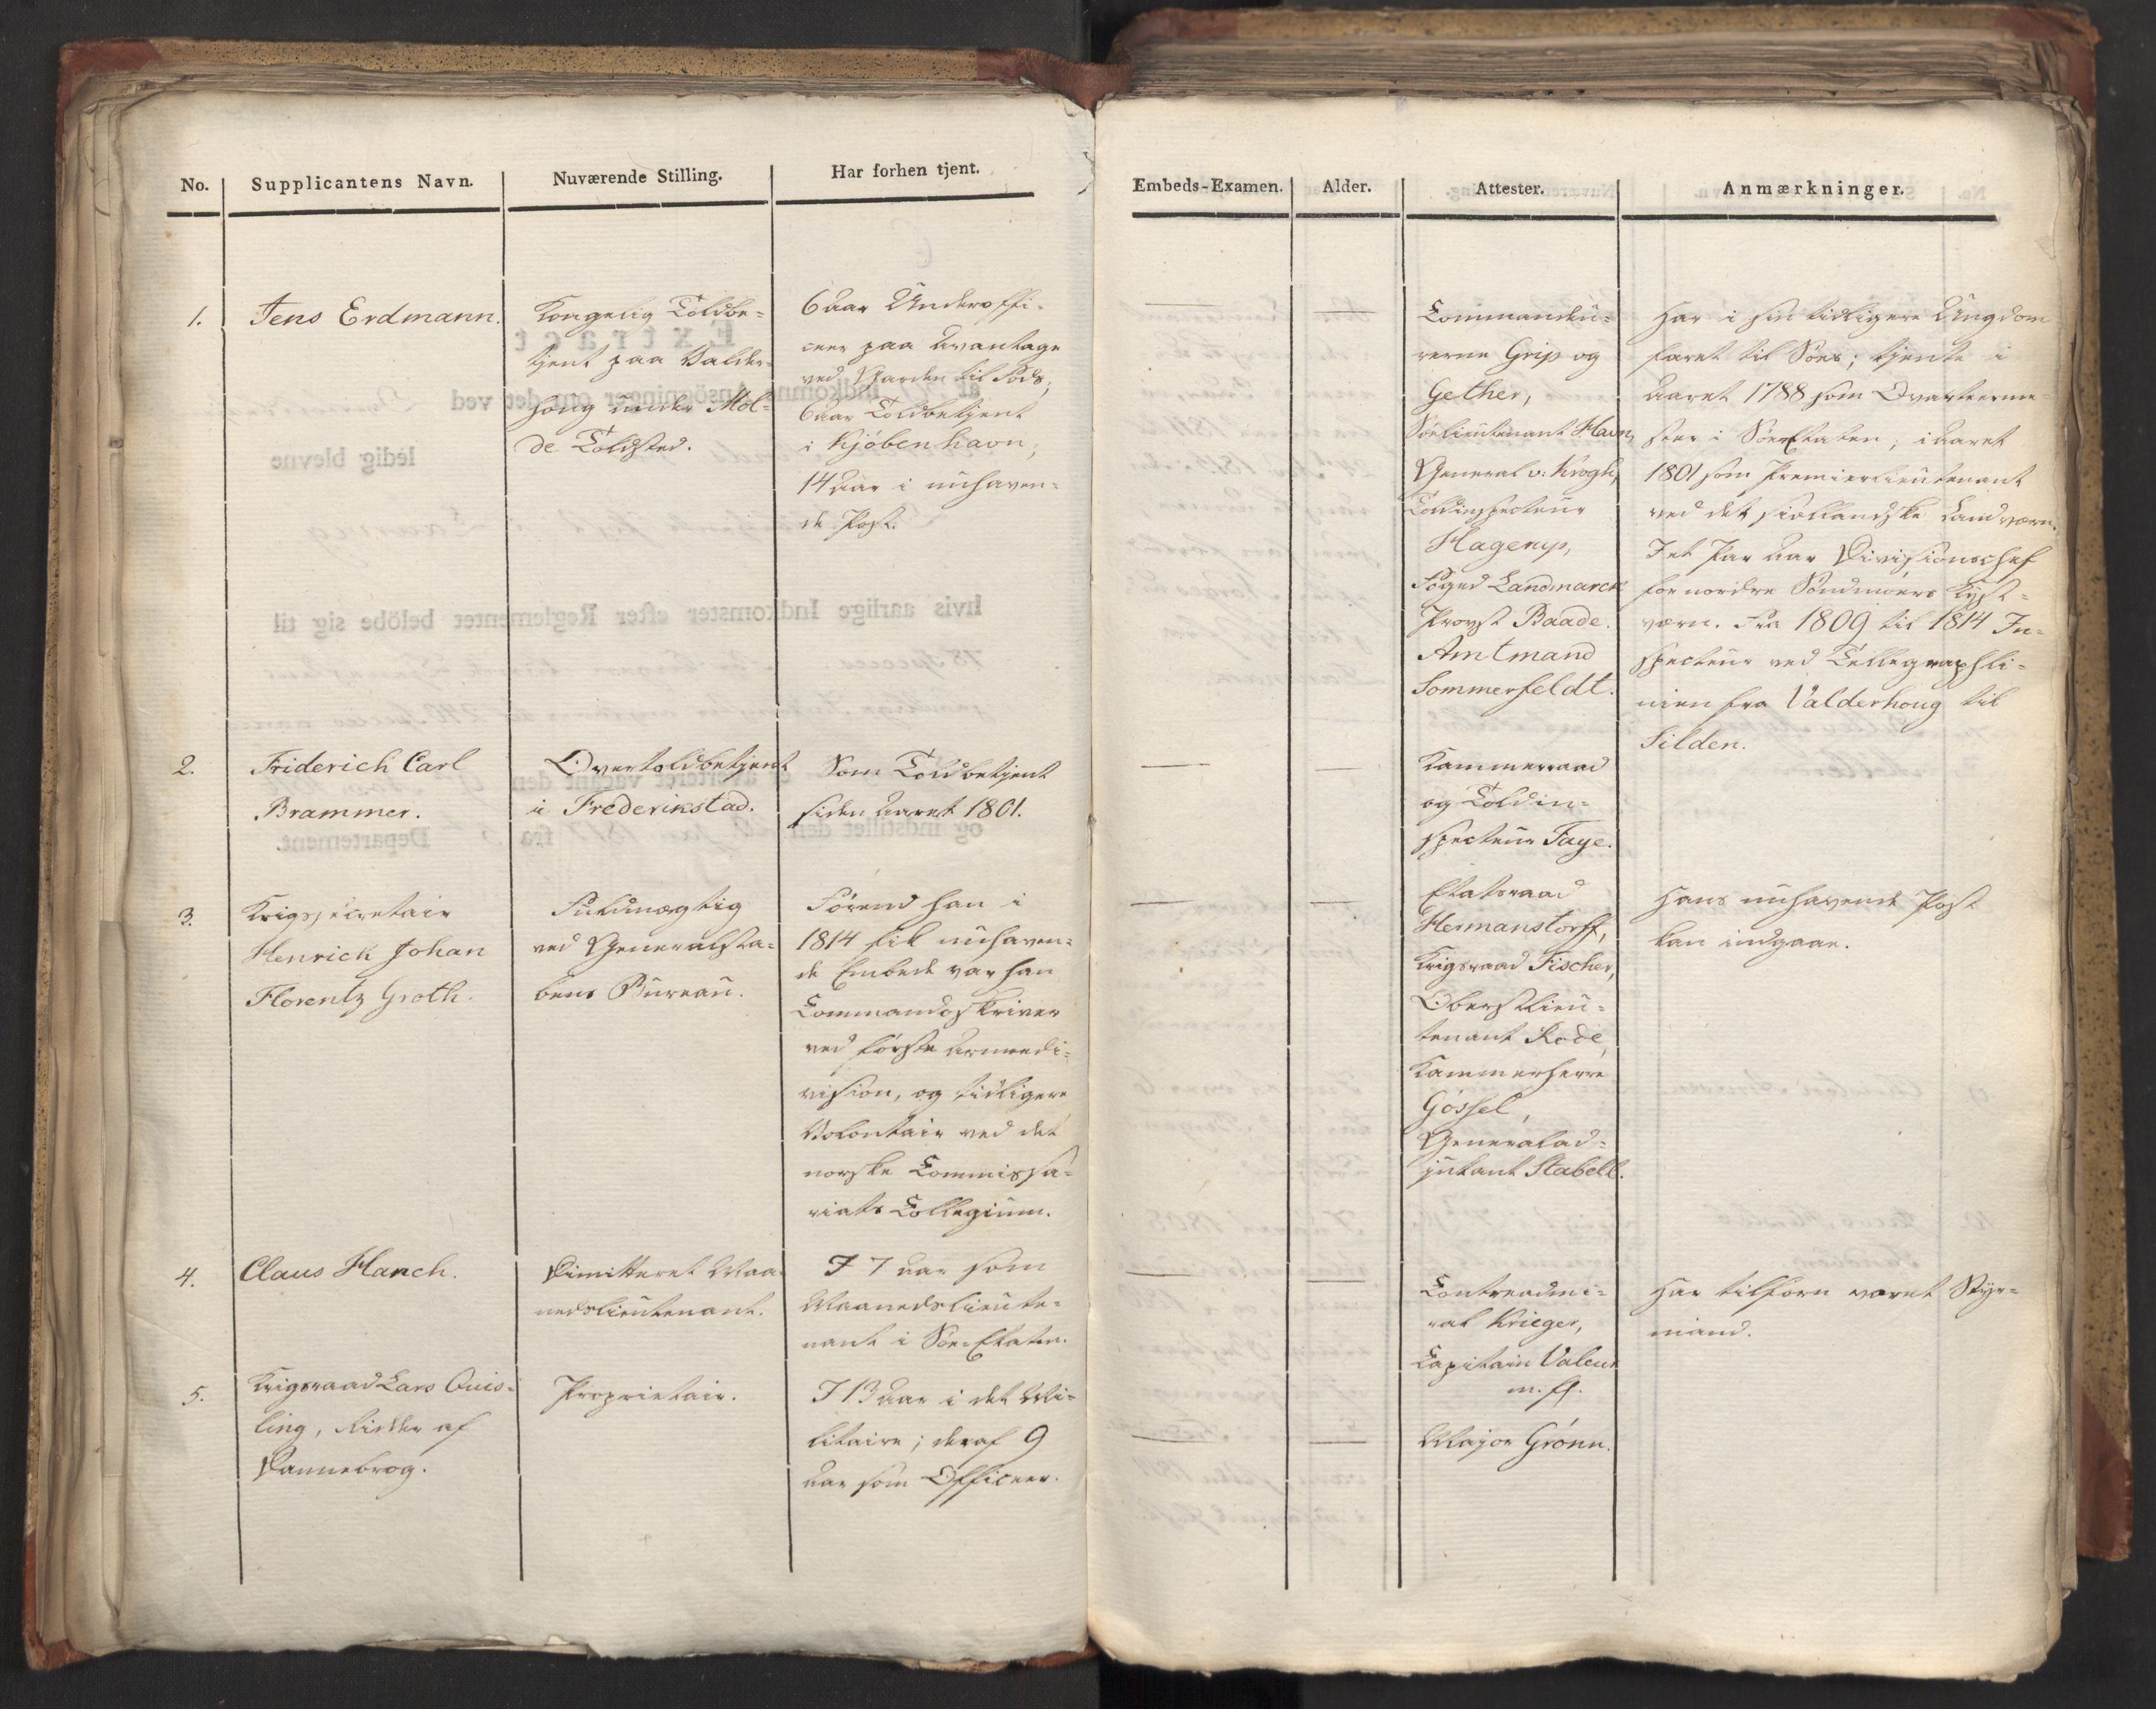 No. Supplicantens Navn. Nuværende Stilling. Har forhen tjent.
Embeds-Examen. Alder. Attester. Anmærkninger.
1.
Jens Erdmann.
Kongelig Toldbe=
tjent paa Valder=
houg under Mol=
de Toldsted.
6 Aar Underoffi=
ceer paa Avantage
ved Garden til Fods,
6 Aar Toldbetjent
i Kjöbenhavn,
14 Aar i nuhaven=
de Post.
—
—
Commandeu=
rerne Grip og
Gether,
Söelieutenant Haun,
General v: Krogh,
Toldinspecteur
Hagerup,
Foged Landmarck
Provst Baade.
Amtmand
Sommerfeldt.
Har i sin tidligere Ungdom
faret til Söes; tjente i
Aaret 1788 som Qvarteerme=
ster i Söe-Etaten; i Aaret
1801 som Premierlieutenant
ved det siellandske Landværn.
I et Par Aar Divisionschef
for nordre Söndmöers Kyst=
værn. Fra 1809 til 1814 In=
specteur ved Tellegraphli=
nien fra Valderhoug til
Silden.
2.
Friderich Carl
Brammer.
Overtoldbetjent
i Frederikstad.
Som Toldbetjent
siden Aaret 1801.
—
—
Kammerraad
og Toldin=
specteur Faye.
3.
Krigssecretair
Henrick Johan
Florentz Groth.
Fuldmægtig
ved Generalsta=
bens Bureau.
Förend han i
1814 fik nuhaven=
de Embede var han
Commandoskriver
ved förste Armeedi=
vision, og tidligere
Volontair ved det
norske Commissa=
riats Collegium.
—
—
Etatsraad
Hermanstorff,
Krigsraad Fischer,
Oberstlieu=
tenant Rode,
Kammerherre
Gössel,
Generalad=
jutant Stabell.
Hans nuhavende Post
kan indgaae.
4.
Claus Hanch.
Dimitteret Maa=
nedslieutenant.
I 7 Aar som
Maanedslieute=
nant i Söe-Etaten.
—
—
Contreadmi=
ral Krieger,
Capitain Valeur
m. fl.
Har tilforn været Styr=
mand.
5.
Krigsraad Lars Quis=
ling, Ridder af
Dannebrog.
Proprietair.
I 13 Aar i det Mi=
litaire; deraf 9
Aar som Officeer.
—
—
Major Grönn.